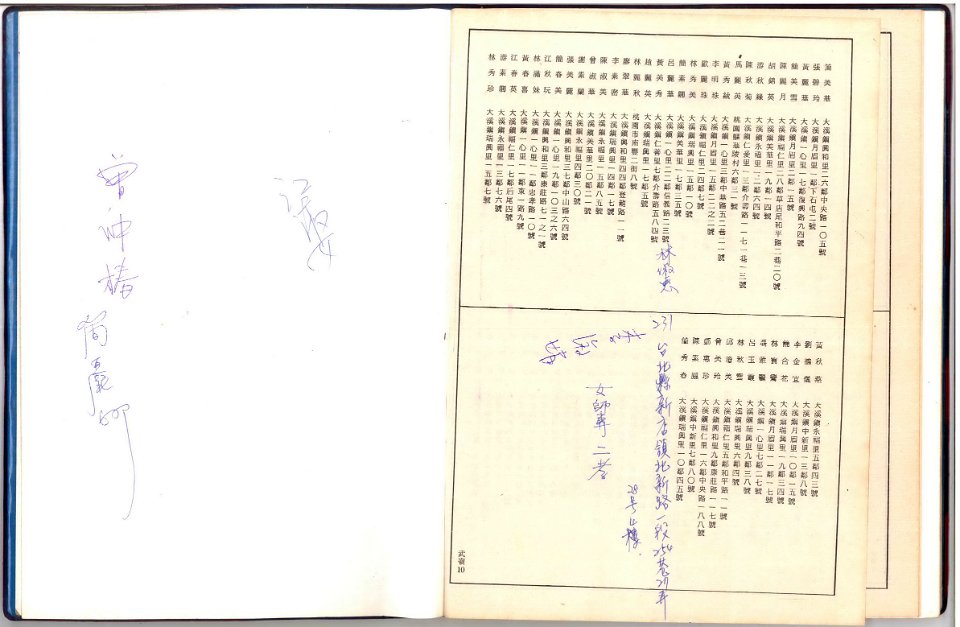 曾沖椿
簡麗卿
美華 大溪鎮興和里二六鄰中央路一〇五號
張碧玲 大溪鎮月眉里一鄰下石屯二號
黃麗華 大溪鎮一心里一七鄰復興路九四號
簡美雪 大溪鎮月眉里二鄰一五號
陳月 大溪鎮福仁里二八鄰草店尾和平路二巷二〇號
胡錦英 大溪鎮美華里一九鄰一四號
游秋綠 大溪鎮永福里一二鄰六四號
陳秋菊 大溪鎮仁愛里一三鄰介壽路一七一巷一三號
馬麗美 桃園縣陵村六鄰三一號
黃秀敏 大溪鎮一心里三鄰中華路五二巷二一號
李明珠 大溪鎮月眉里一五鄰二二之二號
歐麗珠 大溪鎮福仁里二四鄰七號
林秀美 大溪鎮瑞興里一五鄰一〇號
簡素卿 大溪鎮美華里一七鄰三五號
呂麗華 大溪鎮一心里二二鄰信義路二三號
黃美秀 大溪鎮仁善里七鄰介壽路五八四號
趙麗英 大溪鎮瑞興里一七鄰五號
林麗秋 桃園市南豐二街八號
廖翠華 大溪鎮興和里四四鄰登龍路一一號
李素密 大溪鎮瑞興里一四鄰一七號
陳淑美 大溪鎮永福里一五鄰八五號
曾淑華 大溪鎮美華里二〇鄰二一號
謝素蘭 大溪鎮永福里四鄰三〇號
張美麗 大溪鎮興和里三七鄰中山路六四號
簡春美 大溪鎮一心里一九鄰一〇三之六號
江秋玩 大溪鎮興和里三鄰康莊路七一之一號
林滿妹 大溪鎮一心里一一鄰忠孝路一〇號
黃春喜 大溪鎮一心里一一鄰東一路九號
江春英 大溪鎮福仁里一七鄰后尾四號
游素卿 大溪鎮永福里一三鄰七六號
林秀珍 大溪鎮瑞興里一五鄰七號
林淑惠
231 台北縣新店鎮北新路一段254巷27弄
28号4樓
黃秋燕 大溪鎮永福里五鄰四三號
劉德儀 大溪鎮中新里一三鄰八號
李金宜 大溪鎮月眉里一〇鄰一五號
簡合花 大溪鎮瑞興里一九鄰三四號
林寶鸞 大溪鎮月眉里一一鄰一七號
大溪鎮一心里七鄰二七號
呂玉 大溪鎮瑞興里九鄰三八號
林秋雲 大溪鎮瑞興里六鄰四號
邱香美 大溪鎮福仁里五鄰和平路一一號
曾美玲 大溪鎮興和里九鄰康莊路一一七號
鄧惠珍 大溪鎮福仁里一六鄰中央路一八八號
陳 大溪鎮中新里七鄰八〇號
簡秀春 大溪鎮瑞興里一〇鄰四五號
女師專二孝
武嶺10